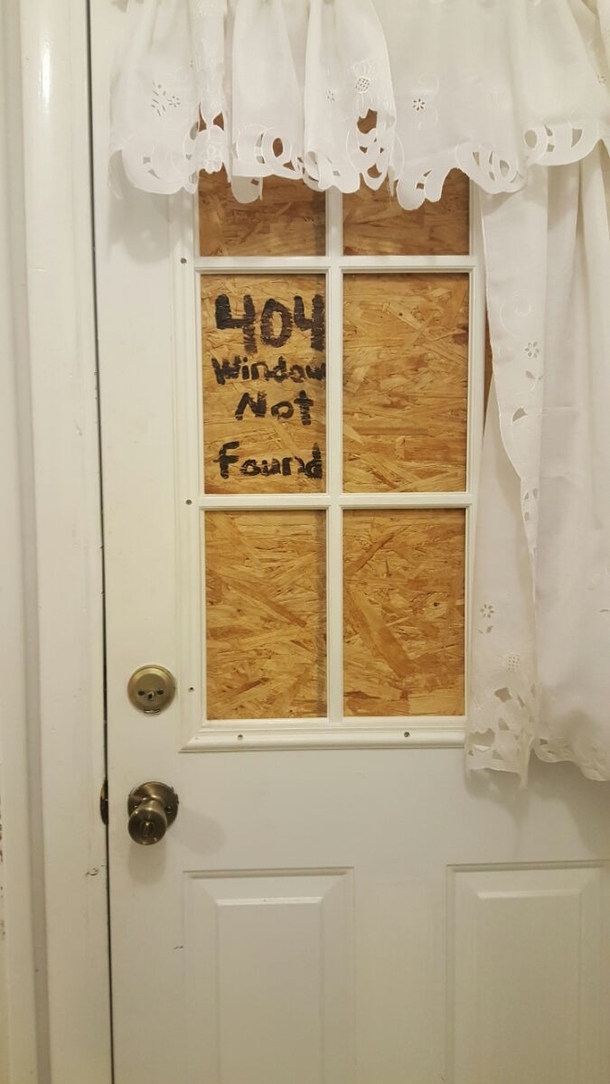 404
Window
Not
Found